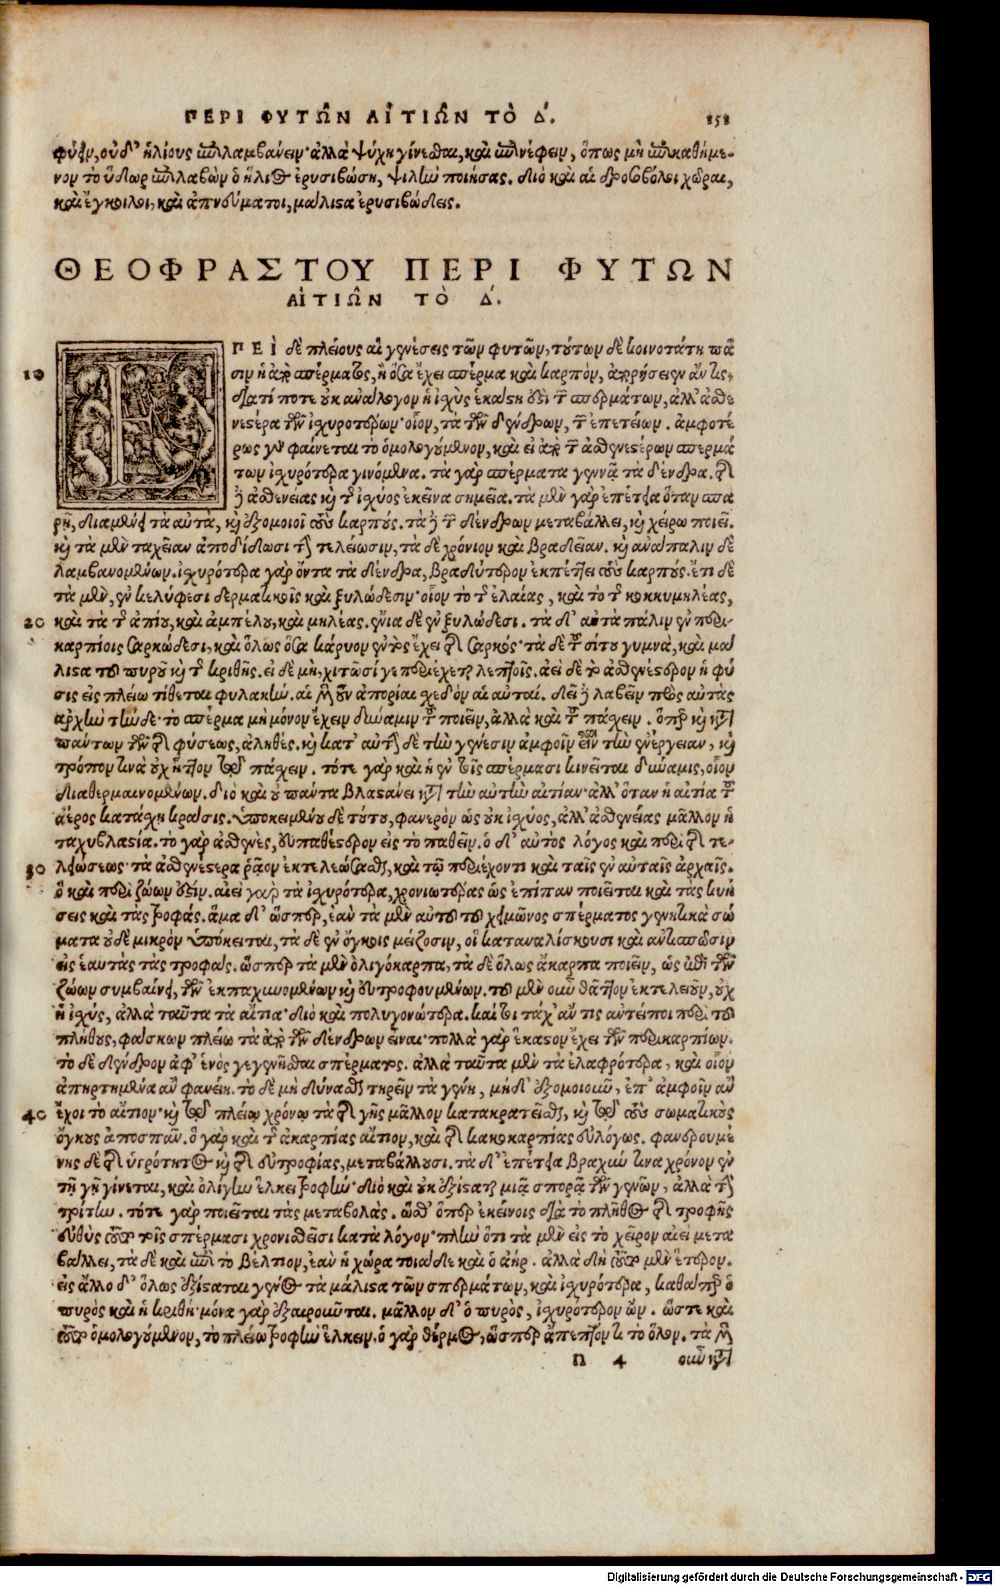 ΠΕΡΙ ΦΥΤΩ͂Ν ΑἸΤΙΩ͂Ν ΤῸ Δ΄.
151
φύξιν, οὐδ' ἡλίους ἐπιλαμβάνειν· ἀλλὰ ψύχη γίνεσθαι, καὶ ἐπινέφειν, ὅπως μὴ ἐπικαθήμε-
νον τὸ ὕδωρ ἐπιλαβὼν ὁ ἥλιος ἐρυσιβώσῃ, ψιλὴν ποιήσας. διὸ καὶ αἱ δροσοβόλοι χῶραι,
καὶ ἔγκοιλοι, καὶ ἀπνεύματοι, μάλιστα ἐρυσιβώδεις.
ΘΕΟΦΡΑΣΤΟΥ ΠΕΡΙ ΦΥΤΩΝ
ΑἸΤΙΩ͂Ν ΤῸ Δ΄.
ΕΠΕῚ δὲ πλείους αἱ γενέσεις τῶν φυτῶν, τούτων δὲ κοινοτάτη πᾶ
10 σιν ἡ ἀπὸ σπέρματος, ἢ ὅσα ἔχει σπέρμα καὶ καρπὸν, ἀπορήσειεν ἄν τις,
διατί ποτε οὐκ ἀνάλογον ἡ ἰχὺς ἑκάστη ἐστὶ τῶν σπερμάτων, ἀλλ' ἀσθε
νέστερα τῶν ἰχυροτέρων· οἷον, τὰ τῶν δένδρων, τῶν ἐπετείων. ἀμφοτέ
ρως γὰρ φαίνεται τὸ ὁμολογούμενον, καὶ εἰ ἀπὸ τῶν ἀσθενεστέρων σπερμά
των ἰχυρότερα γινόμενα. τὰ γὰρ σπέρματα γεννᾷ τὰ δένδρα. τῆς
δὲ ἀσθενείας καὶ τῆς ἰχύος ἐκεῖνα σημεῖα. τὰ μὲν γὰρ ἐπέτεια ὅταν σπα
ρῇ, διαμένει τὰ αὐτὰ, καὶ ἐξομοιοῖ τοὺς καρπούς. τὰ δὲ τῶν δένδρων μεταβάλλει, καὶ χείρω ποιεῖ.
καὶ τὰ μὲν ταχεῖαν ἀποδίδωσι τὴν τελείωσιν, τὰ δὲ χρόνιον καὶ βραδεῖαν. καὶ ἀνάπαλιν δὲ
λαμβανομένων. ἰχυρότερα γὰρ ὄντα τὰ δένδρα, βραδύτερον ἐκπέττει τοὺς καρπούς. ἔτι δὲ
τὰ μὲν, ἐν κελύφεσι δερματικοῖς καὶ ξυλώδεσιν· οἷον τὸ τῆς ἐλαίας, καὶ τὸ τῆς κοκκυμηλέας,
20 καὶ τὰ τῆς ἀπίου, καὶ ἀμπέλου, καὶ μηλέας. ἔνια δὲ ἐν ξυλώδεσι. τὰ δ' αὐτὰ πάλιν ἐν περι-
καρπίοις σαρκώδεσι, καὶ ὅλως ὅσα κάρυον ἐντὸς ἔχει τῆς σαρκός· τὰ δὲ τοῦ σίτου γυμνὰ, καὶ μά
λιστα τοῦ πυροῦ καὶ τῆς κριθῆς. εἰ δὲ μὴ, χιτῶσί γε περιέχεται λεπτοῖς. ἀεὶ δὲ τὸ ἀσθενέστερον ἡ φύ
σις εἰς πλείω τίθεται φυλακήν. αἱ μὲν οὖν ἀπορίαι χεδὸν αἱ αὐταί. δεῖ δὲ λαβεῖν πρὸς αὐτὰς
ἀρχὴν τήνδε· τὸ σπέρμα μὴ μόνον ἔχειν δύναμιν τοῦ ποιεῖν, ἀλλὰ καὶ τοῦ πάχειν. ὅπερ καὶ κατὰ
πάντων τῶν τῆς φύσεως, ἀληθές. καὶ κατ' αὐτὴν δὲ τὴν γένεσιν ἀμφοῖν εἶναι τὴν ἐνέργειαν, καὶ
τρόπον τινὰ οὐχ ἧττον τοῦ πάχειν. τότε γὰρ καὶ ἡ ἐν τοῖς σπέρμασι κινεῖται δύναμις, οἷον
διαθερμαινομένων. διὸ καὶ οὐ πάντα βλαστάνει κατὰ τὴν αὐτὴν αἰτίαν· ἀλλ' ὅταν ἡ αἰτία τοῦ
ἀέρος κατάχῃ κράσις. ὑποκειμένου δὲ τούτου, φανερὸν ὡς οὐκ ἰχύος, ἀλλ' ἀσθενείας μᾶλλον ἡ
ταχυβλαστία. τὸ γὰρ ἀσθενὲς, εὐπαθέστερον εἰς τὸ παθεῖν. ὁ δ' αὐτὸς λόγος καὶ περὶ τῆς τε-
30 λειώσεως· τὰ ἀσθενέστερα ῥᾷον ἐκτελεώσασθαι, καὶ τῷ περιέχοντι καὶ ταῖς ἐν αὐταῖς ἀρχαῖς.
ὃ καὶ περὶ ζώων ἐστίν. αἰεὶ γὰρ τὰ ἰχυρότερα, χρονιωτέρας ὡς ἐπίπαν ποιεῖται καὶ τὰς κινή
σεις καὶ τὰς τροφάς. ἅμα δ' ὥσπερ, ἐὰν τὰ μὲν αὐτοῦ τοῦ χειμῶνος σπέρματος γεννητικὰ σώ
ματα οὐδὲ μικρὸν ὑπόκειται, τὰ δὲ ἐν ὄγκοις μείζοσιν, οἳ καταναλίσκουσι καὶ ἀντισπῶσιν
εἰς ἑαυτὰς τὰς τροφάς. ὥσπερ τὰ μὲν ὀλιγόκαρπα, τὰ δὲ ὅλως ἄκαρπα ποιεῖν, ὡς ἐπὶ τῶν
ζώων συμβαίνει, τῶν ἐκπαχυνομένων καὶ εὐτροφουμένων. τοῦ μὲν οὖν θᾶττον ἐκτελεῖν, οὐχ
ἡ ἰχὺς, ἀλλὰ ταῦτα τὰ αἴτια· διὸ καὶ πολυγονώτερα. καί τοι τάχ' ἄν τις ἀντείποι περὶ τοῦ
πλήθους, φάσκων πλείω τὰ ἀπὸ τῶν δένδρων εἶναι· πολλὰ γὰρ ἕκαστον ἔχει τῶν περικαρπίων.
τὸ δὲ δένδρον ἀφ' ἑνὸς γεγενῆσθαι σπέρματος. ἀλλὰ ταῦτα μὲν τὰ ἐλαφρότερα, καὶ οἷον
ἀπηρτημένα ἂν φανείη. τὸ δὲ μὴ δύνασθαι τηρεῖν τὰ γένη, μηδ' ἐξομοιοῦν, ἐπ' ἀμφοῖν ἂν
40 ἔχοι τὸ αἴτιον· καὶ τοῦ πλείω χρόνῳ τὰ τῆς γῆς μᾶλλον κατακρατεῖσθαι, καὶ τοῦ τοὺς σωματικοὺς
ὄγκους ἀποσπᾶν. ὃ γὰρ καὶ τῆς ἀκαρπίας αἴτιον, καὶ τῆς κακοκαρπίας εὐλόγως. φανερουμέ
νης δὲ τῆς ὑγρότητος καὶ τῆς εὐτροφίας, μεταβάλλουσι. τὰ δ' ἐπέτεια βραχύν τινα χρόνον ἐν
τῇ γῇ γίνεται, καὶ ὀλίγην ἕλκει τροφήν· διὸ καὶ οὐκ ἐξίσταται μιᾷ σπορᾷ τῶν γενῶν, ἀλλὰ τῇ
τρίτῃ. τότε γὰρ ποιεῖται τὰς μεταβολάς. ὥσθ' ὅπερ ἐκείνοις διὰ τὸ πλῆθος τῆς τροφῆς
εὐθὺς τοῦτο τοῖς σπέρμασι χρονισθεῖσι κατὰ λόγον· πλὴν ὅτι τὰ μὲν εἰς τὸ χεῖρον αἰεὶ μετα
βάλλει, τὰ δὲ καὶ ἐπὶ τὸ βέλτιον, ἐὰν ἡ χώρα ποιάδε καὶ ὁ ἀήρ. ἀλλὰ δὴ τοῦτο μὲν ἕτερον.
εἰς ἄλλο δ' ὅλως ἐξίσταται γένος τὰ μάλιστα τῶν σπερμάτων, καὶ ἰχυρότερα, καθάπερ ὁ
πυρὸς καὶ ἡ κριθή· μόνα γὰρ ἐξαιροῦνται. μᾶλλον δ' ὁ πυρὸς, ἰχυρότερον ὄν. ὥστε καὶ
τοῦτο ὁμολογούμενον, τὸ πλείω τροφὴν ἕλκειν. ὁ γὰρ θέρμος, ὥσπερ ἀπεπτόν τι τὸ ὅλον. τὰ μὲν
n 4 οὖν κατὰ
Digitalisierung gefördert durch die Deutsche Forschungsgemeinschaft - DFG